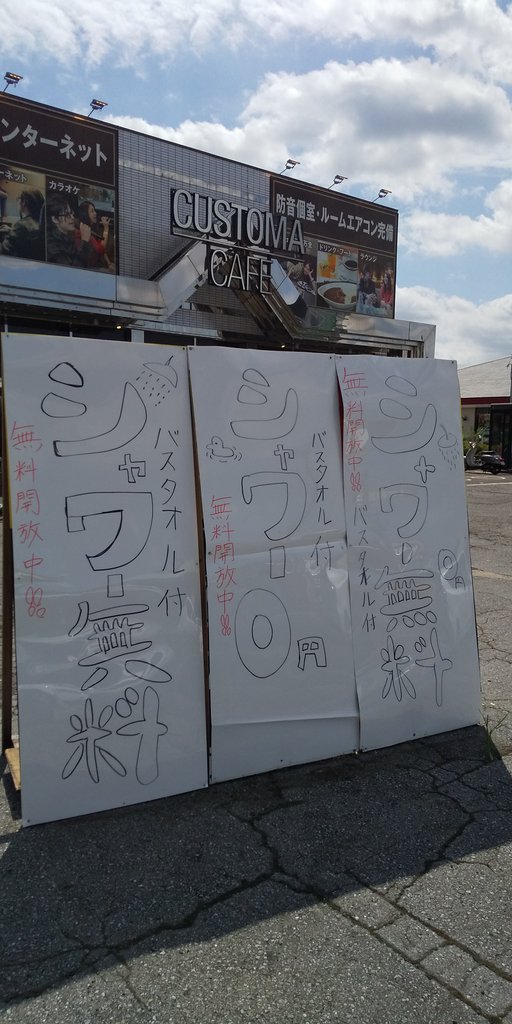 ンターネット
ーネット
カラオケ
CUSTOMA
CAFE
防音個室・ルームエアコン完備
ドリンク・フード
ラウンジ
シャワー無料
バスタオル付
無料開放中!!
シャワー0円
バスタオル付
無料開放中!!
シャワー無料
0円
バスタオル付
無料開放中!!